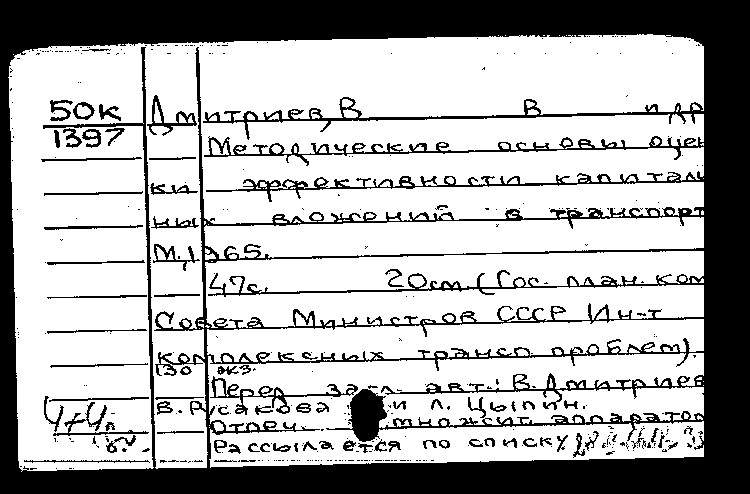 50к Дмитриев, В В и др
1397
Методические основы оцен
ки эффективности капиталь
ных вложений в транспорт
М., 1965.
47с. 20см (Гос. план. ком
Совета Министров СССР Ин-т
комплексных трансп проблем).
130 экз.
Перед загл. авт.: В. Дмитриев
В. Русакова и Л. Цыпин.
4+4п Отпеч. множит аппаратом
Рассылается по списку